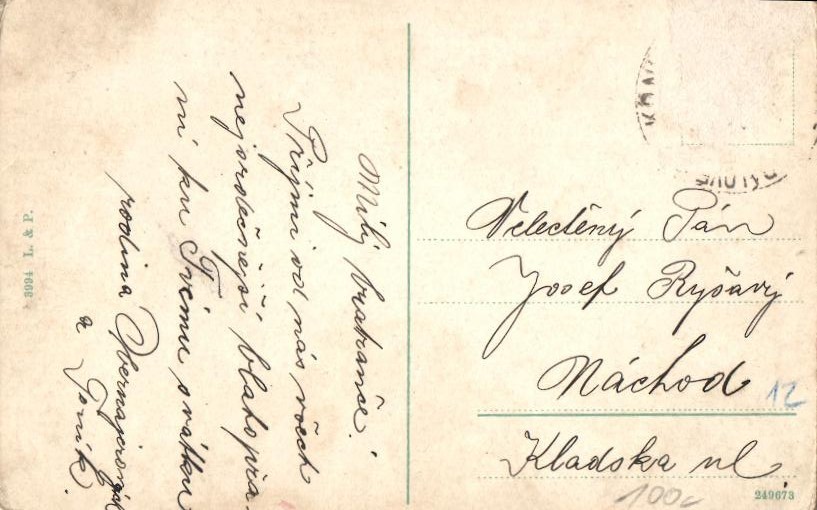 Milý bratranče!
Přijmi od nás všech
nejsrdečnější blahopřá-
ní ku Tvému svátku
rodina
a Toník.
Velectěný Pán
Josef Ryšavý
Náchod
12
Kladska ul.
100
249673
3994 L. & P.